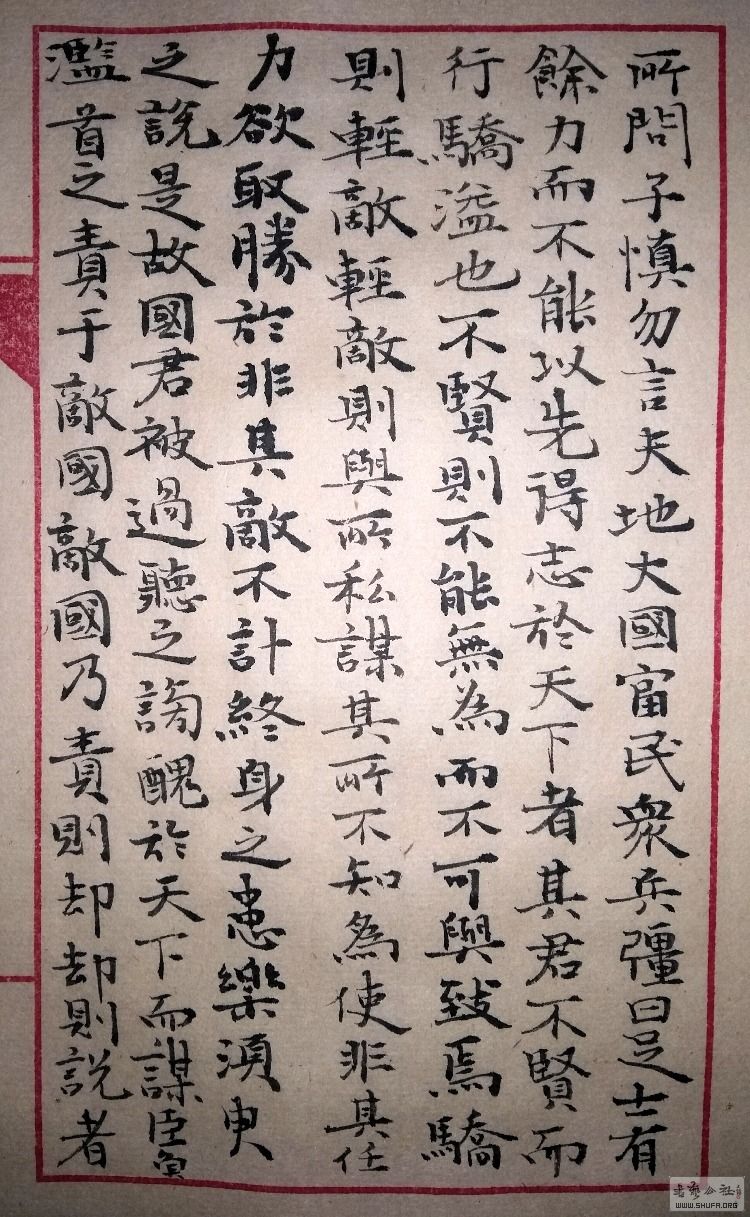 所問子慎勿言夫地大國富民衆兵彊曰足士有
餘力而不能以先得志於天下者其君不賢而
行驕溢也不賢則不能無為而不可與致焉驕
則輕敵輕敵則與所私謀其所不知為使非其任
力欲取勝於非其敵不計終身之患樂湏臾
之說是故國君被過聽之謗醜於天下而謀臣負
濫首之責于敵國敵國乃責則却却則說者
WWW.SHUFA.ORG